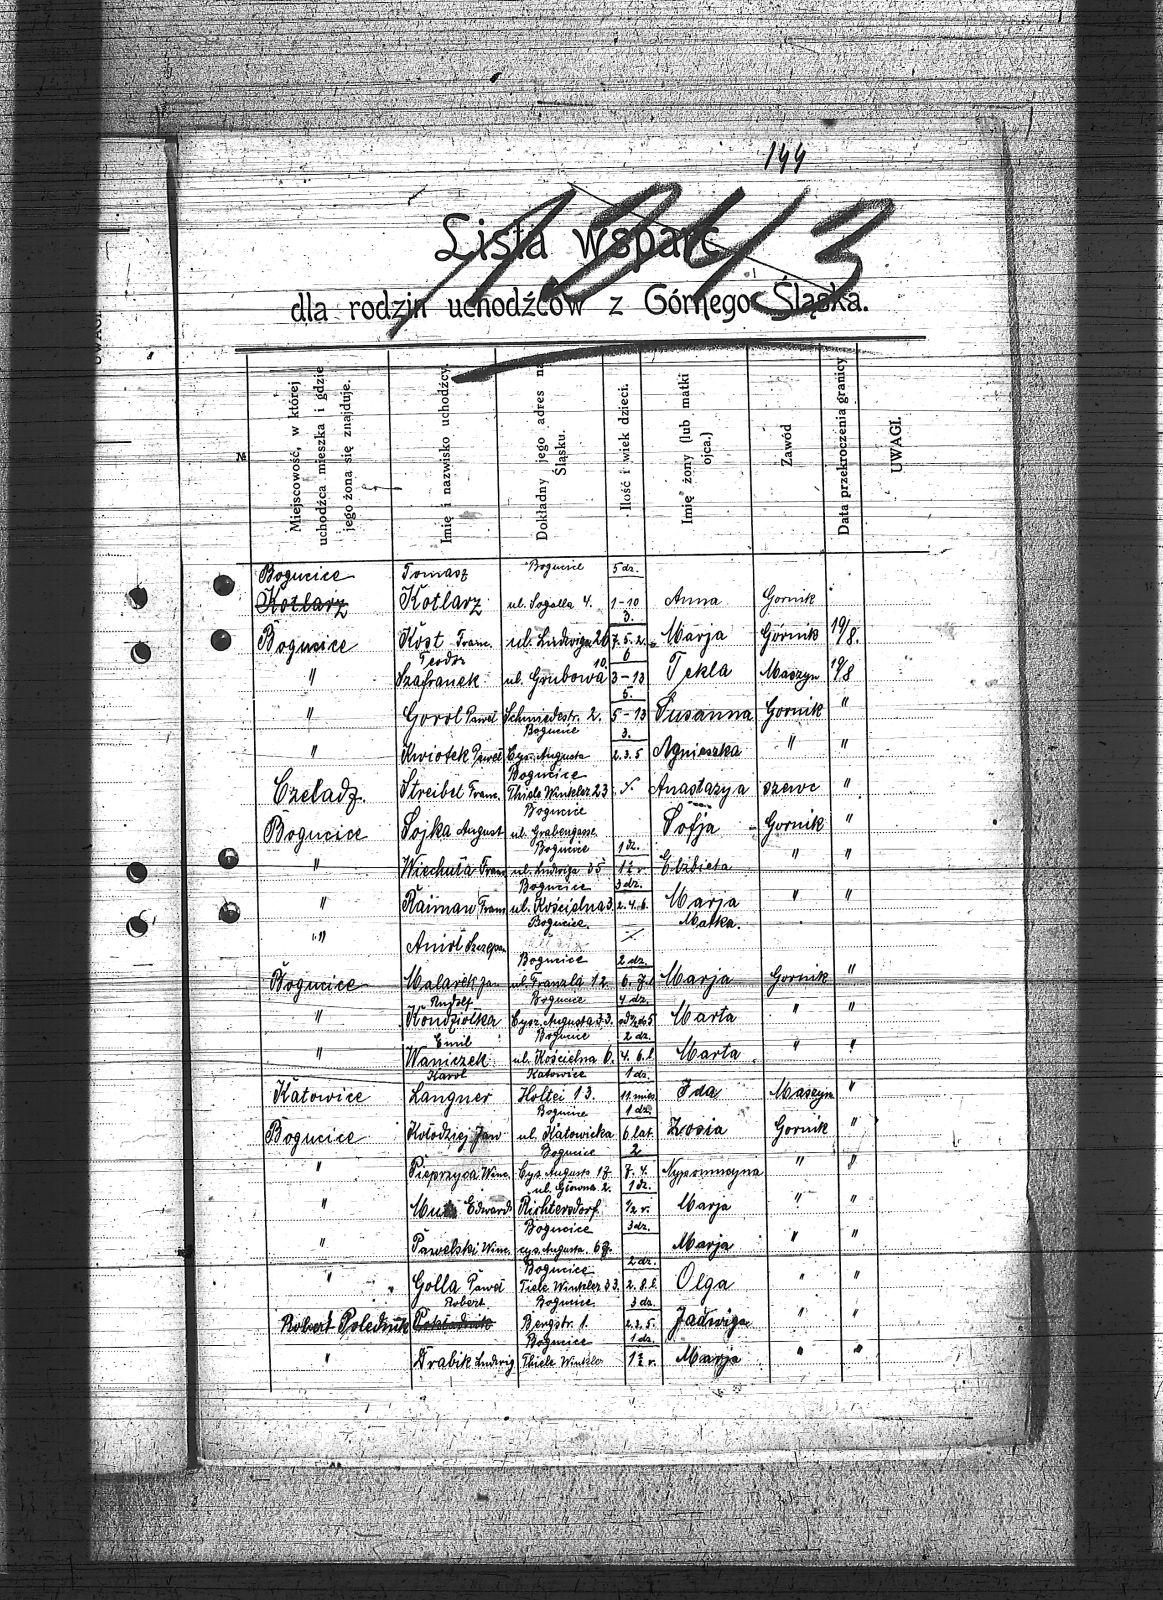 144
1243
Lista wsparć
dla rodzin uchodźców z Górnego Śląska.
UWAGI.
№
Miejscowość, w której uchodźca mieszka i gdzie jego żona się znajduje.
Imię i nazwisko uchodźcy.
Dokładny jego adres na Śląsku.
Ilość i wiek dzieci.
Imię żony (lub matki ojca.)
Zawód
Data przekroczenia granicy
UWAGI.
Bogucice Tomasz Bogucice 5 dz.
Kotlarz Kotlarz ul. Sogalla 4. 1-10 Anna Gornik
3.
Bogucice Kost Franc. ul. Ludwiga 26 7. 5. 2. Marja Górnik 19/8.
Teodor 10. 6
" Szafranek ul. Grubowa 3-13 Tekla Maszyn 19/8
5.
" Gorol Paweł Schmiedestr. 2. 5-13 Susanna Gornik "
Bogucice 3.
" Kwiotek Paweł Cys. Augusta 2. 3. 5 Agnieszka " "
Bogucice
Czeladz. Streibel Franc. Thiele Winkler 23 Anastazya szewc "
Bogucice
Bogucice Sojka August ul. Grabengasse. Sofja Gornik "
Bogucice 1 dz.
" Wiechuła Franc ul. Ludwiga 35 1½ r. Elżbieta " "
Bogucice 3 dz.
" Raiman Franc ul. Kościelna 3. 2. 4. 6. Marja " "
Bogucice. Matka.
" Anioł Szczepan
Bogucice 2 dz.
Bogucice Malarek Jan ul. Franzla 12 6. 8. l Marja Gornik "
Rudolf Bogucice 4 dz.
" Kondziolka Cysz. Augusta 33. od ½ do 5 Marta " "
Emil Bogucice 2 dz.
" Waniczek ul. Kościelna 6. 4. 6. l Marta " "
Karol Katowice 1 dz.
Katowice Langner Holtei 13. 11 mies Ida Maszyn "
Bogucice 1 dz.
Bogucice Kołodziej Jan ul. Katowicka 6 lat Zosia Gornik "
Bogucice 2
" Pieprzyca Winc. Cys. Augusta 17 7. 4. "
ul. Główna 2. 1 dz.
" Edward Richtersdorf. ½ r. Marja " "
Bogucice 3 dz.
" Pawelski Winc. cys. Augusta. 67. Marja " "
Bogucice 2 dz.
" Golla Paweł Tiele Winkler 33. 2. 8. l. Olga " "
Robert Bogucice. 3 dz.
Robert Polednik Bergstr. 1. 2. 3. 5. Jadwiga " "
Bogucice 1 dz.
" Drabik Ludwig Thiele Winkler 1½ r. Marja " "